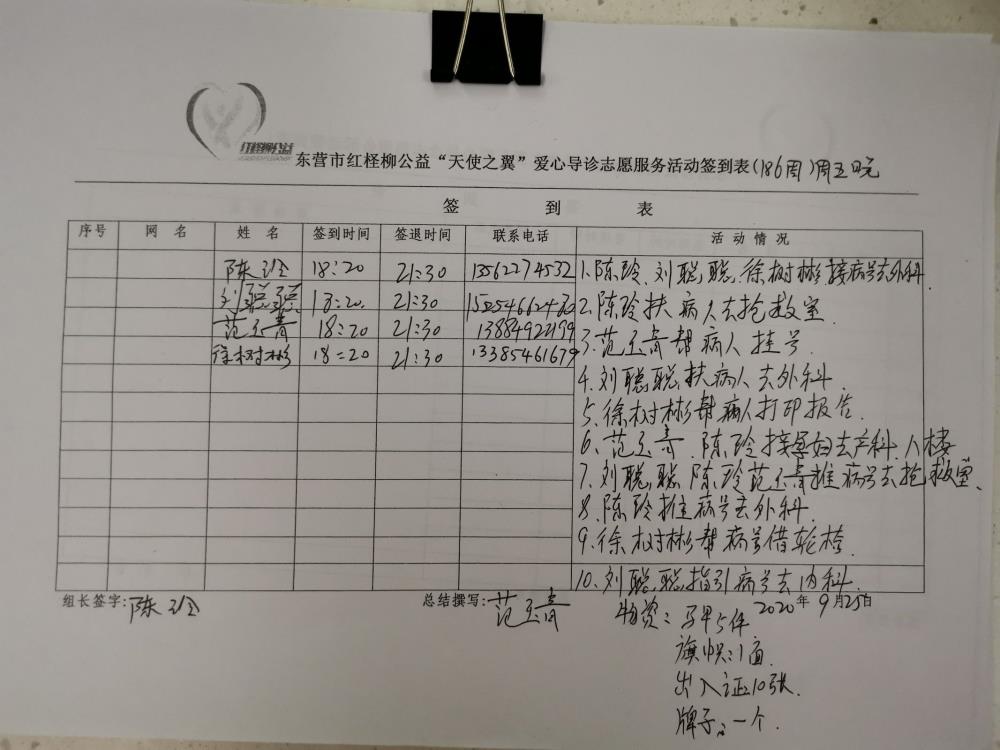 红柽柳公益
东营市红柽柳公益“天使之翼”爱心导诊志愿服务活动签到表(186周)周五晚
签 到 表
序号 网 名 姓 名 签到时间 签退时间 联系电话 活 动 情 况
陈玲 18:20 21:30 13562274532 1.陈玲、刘聪聪、徐树彬接病号去外科
刘聪聪 18:20. 21:30 2.陈玲扶病人去抢救室.
范玉青 18:20 21:30 13884922199 3.范玉青帮病人挂号.
徐树彬 18:20 21:30 13385461679
4.刘聪聪扶病人去外科.
5.徐树彬帮病人打印报告.
6.范玉青、陈玲接孕妇去产科.人楼
7.刘聪聪、陈玲范玉青推病号去抢救室、
8.陈玲推病号去外科.
9.徐树彬帮病号借轮椅.
10.刘聪聪指引病号去内科.
组长签字:陈玲 总结撰写:范玉青 2020年9月25日
物资:马甲5件
旗帜:1面.
出入证:10张.
牌子:一个.